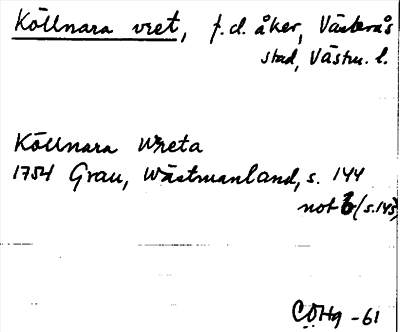 Köllnara vret, f.d. åker, Västerås
stad, Västm. l.
Köllnara Wreta
1754 Grau, Wästmanland, s. 144
not b (s. 145)
CÖHg -61